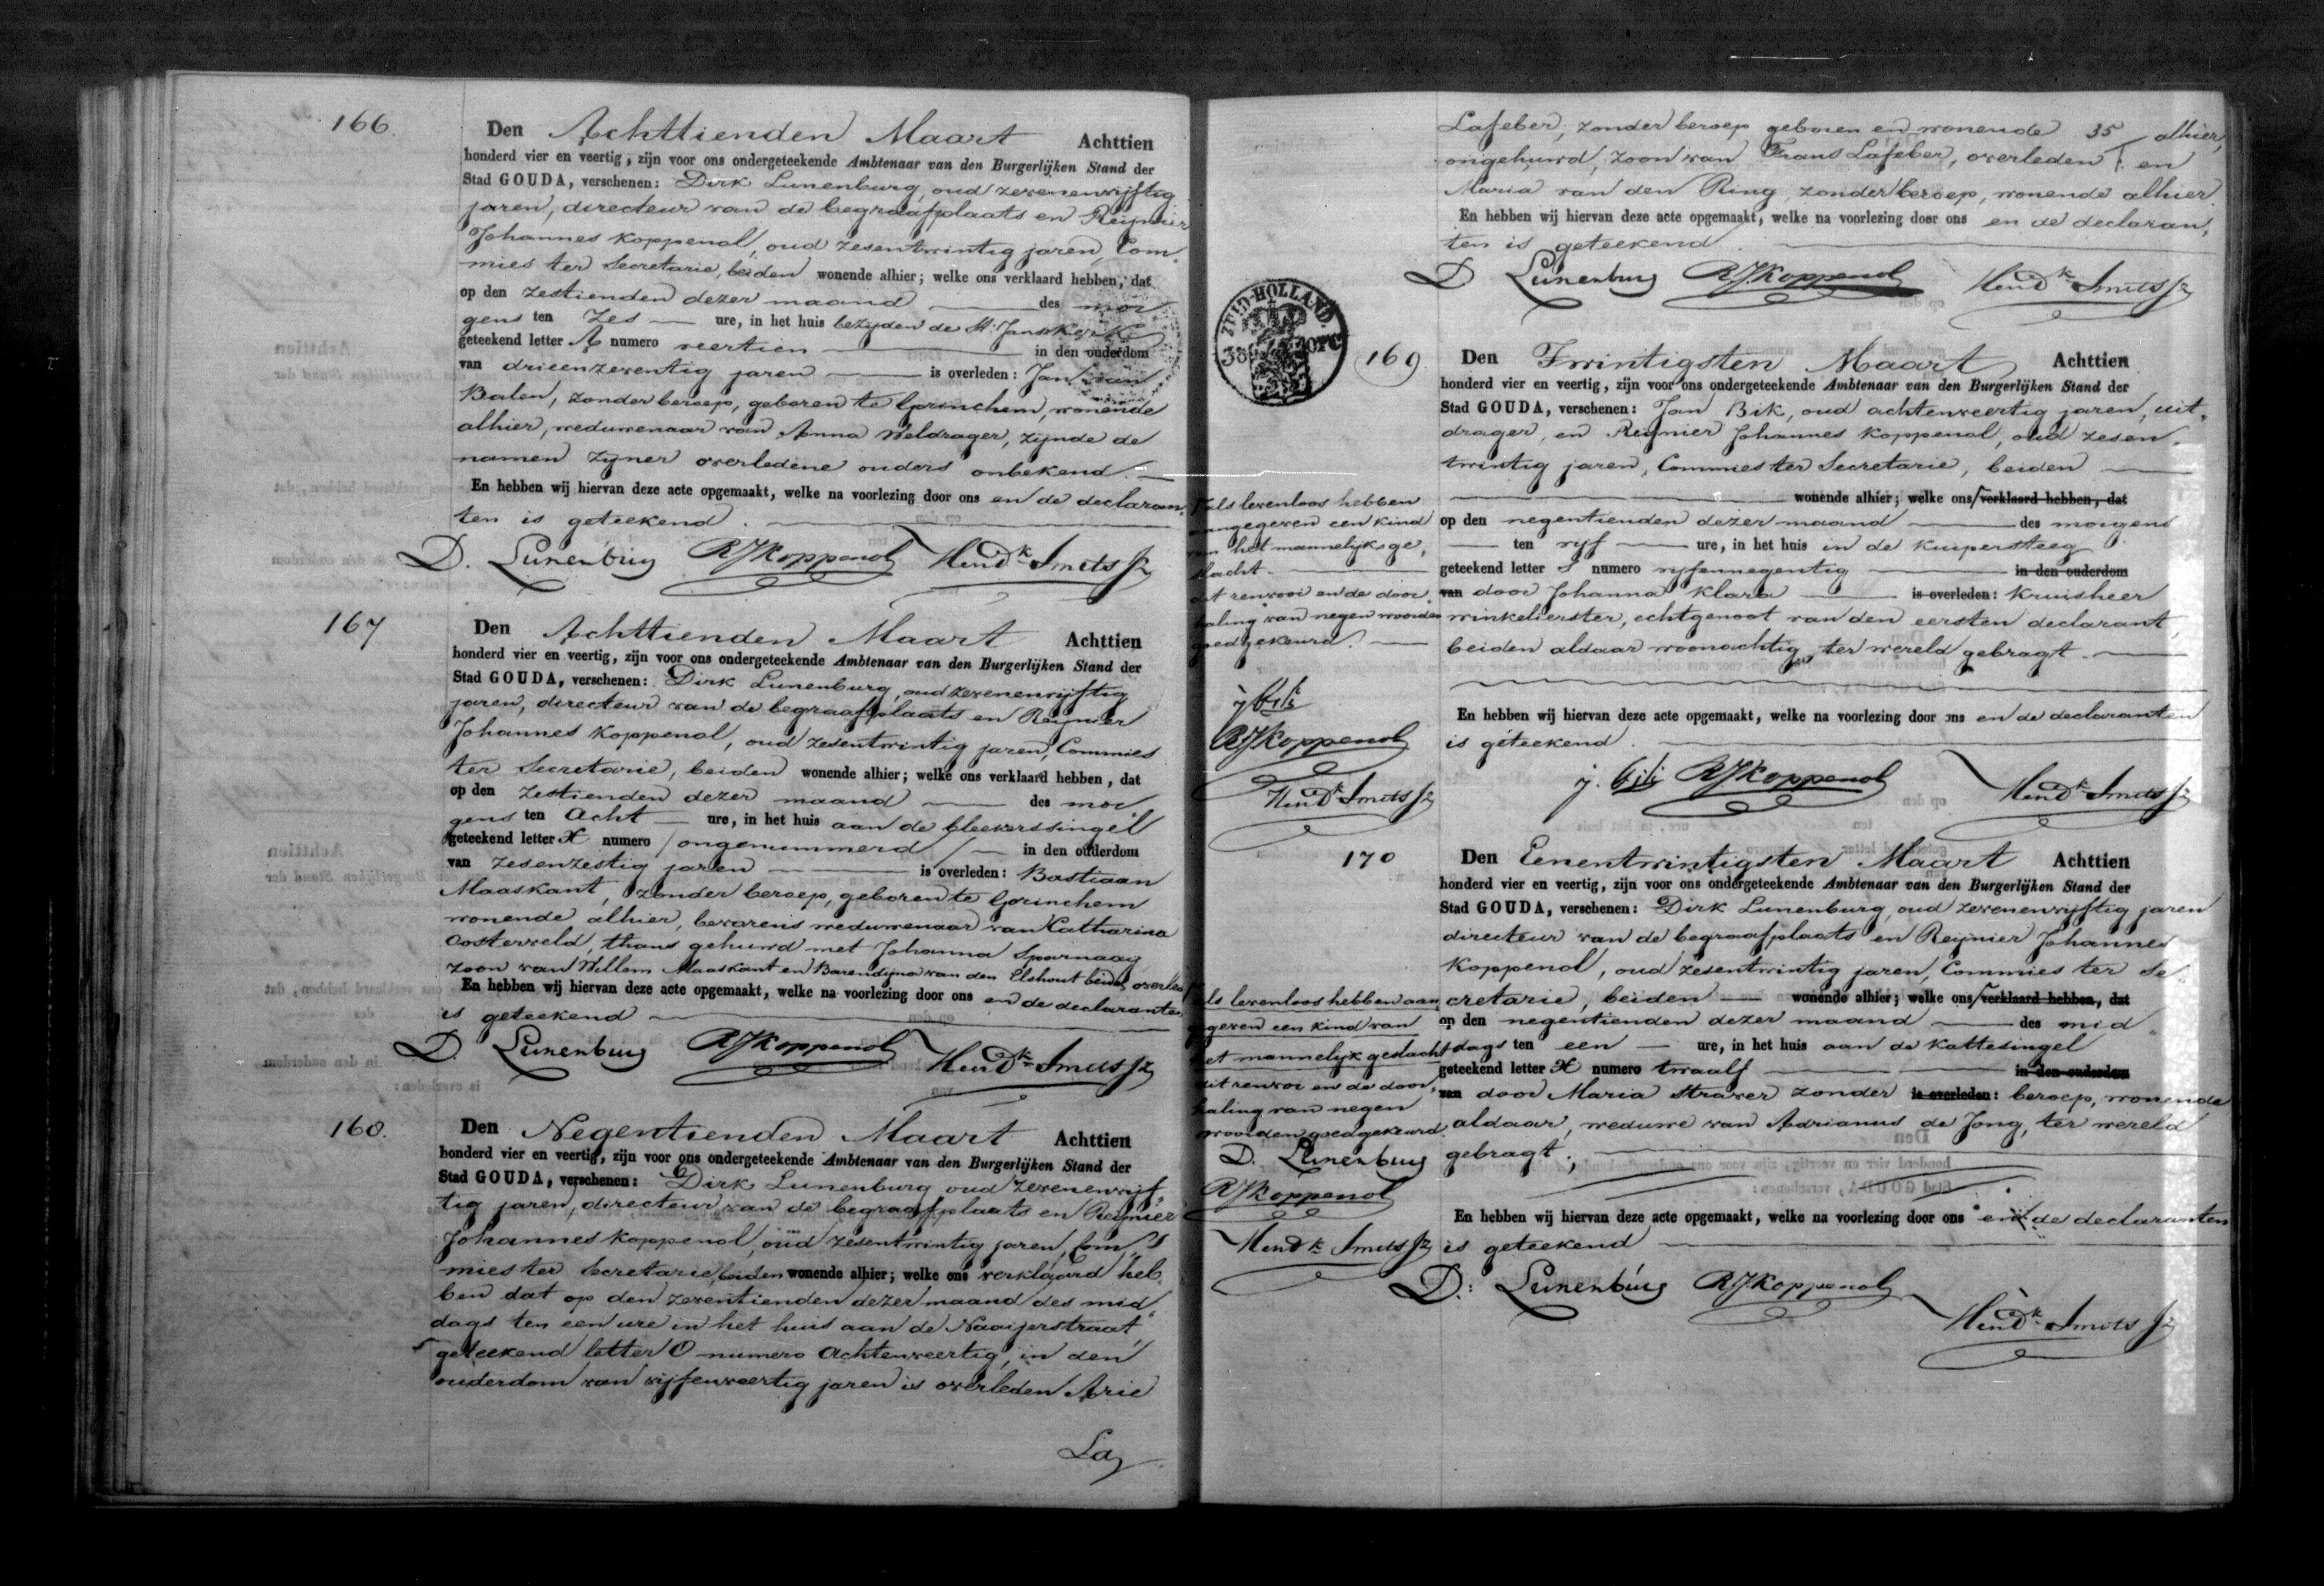 166.
Den Achttienden Maart Achttien
honderd vier en veertig, zijn voor ons ondergeteekende Ambtenaar van den Burgerlijken Stand der
Stad GOUDA, verschenen: Dirk Lunenburg, oud zevenenvijftig
jaren, directeur van de begraafplaats en Reijnier
Johannes Koppenol, oud zesentwintig jaren, Com„
mies ter Secretarie, beiden wonende alhier; welke ons verklaard hebben, dat
op den zestienden dezer maand des mor
gens ten Zes ure, in het huis bezijden de St. Janskerk
geteekend letter A numero veertien in den ouderdom
van drieenzeventig jaren is overleden: Jan van
Balen, zonder beroep, geboren te Gorinchem, wonende
alhier, weduwenaar van Anna Weldrager, zijnde de
namen zijner overledene ouders onbekend.
En hebben wij hiervan deze acte opgemaakt, welke na voorlezing door ons en de declaran„
ten is geteekend.
D. Lunenburg RJKoppenol Hendk Smits Jz
167
Den Achttienden Maart Achttien
honderd vier en veertig, zijn voor ons ondergeteekende Ambtenaar van den Burgerlijken Stand der
Stad GOUDA, verschenen: Dirk Lunenburg, oud zevenenvijftig
jaren, directeur van de begraafplaats en Reijnier
Johannes Koppenol, oud zesentwintig jaren, Commies
ter Secretarie, beiden wonende alhier; welke ons verklaard hebben, dat
op den zestienden dezer maand des mor
gens ten Acht ure, in het huis aan de bleekerssingel
geteekend letter X numero /ongenummerd/ in den ouderdom
van zesenzestig jaren is overleden: Bastiaan
Maaskant, zonder beroep, geboren te Gorinchem
wonende alhier, bevorens weduwenaar van Catharina
Oosterveld, thans gehuwd met Johanna Spoornaaij
zoon van Willem Maaskant en Barendijna van den Elshout beiden overleden
En hebben wij hiervan deze acte opgemaakt, welke na voorlezing door ons en de declaranten
is geteekend
D. Lunenburg RJKoppenol Hendk Smits Jz
168.
Den Negentienden Maart Achttien
honderd vier en veertig, zijn voor ons ondergeteekende Ambtenaar van den Burgerlijken Stand der
Stad GOUDA, verschenen: Dirk Lunenburg oud zevenenvijf„
tig jaren, directeur van de begraafplaats en Reijnier
Johannes Koppenol, oud zesentwintig jaren, Com„
mies ter Secretarie, beiden wonende alhier; welke ons verklaard heb„
ben dat op den zeventienden dezer maand des mid„
dags ten een ure in het huis aan de Naaijerstraat,
geteekend letter O numero Achtenveertig, in den
ouderdom van vijfenveertig jaren is overleden Arie
La
Lafeber, zonder beroep geboren en wonende 35 alhier,
ongehuwd, zoon van Frans Lafeber, overleden en
Maria van den Ring, zonder beroep, wonende alhier.
En hebben wij hiervan deze acte opgemaakt, welke na voorlezing door ons en de declaran„
ten is geteekend.
D Lunenburg RJKoppenol Hendk Smits Jz
ZUID-HOLLAND.
169
Den Twintigsten Maart Achttien
honderd vier en veertig, zijn voor ons ondergeteekende Ambtenaar van den Burgerlijken Stand der
Stad GOUDA, verschenen: Jan Bik, oud achtenveertig jaren, uit„
drager, en Reijnier Johannes Koppenol, oud zesen„
twintig jaren, Commies ter Secretarie, beiden
wonende alhier; welke ons verklaard hebben, dat
op den negentienden dezer maand des morgens
ten vijf ure, in het huis in de Kuipersteeg
geteekend letter numero vijfennegentig in den ouderdom
van door Johanna Klara is overleden: Kruisheer
winkelierster, echtgenoot van den eersten declarant,
beiden aldaar woonachtig, ter wereld gebragt.
En hebben wij hiervan deze acte opgemaakt, welke na voorlezing door ons en de declaranten
is geteekend.
j. bik RJKoppenol Hendk Smits Jz
als levenloos hebben
aangegeven een kind
van het mannelijk ge„
slacht.
dit renvooi en de door„
haling van negen woorden
goedgekeurd.
j bik
RJKoppenol
Hendk Smits Jz
170
Den Eenentwintigsten Maart Achttien
honderd vier en veertig, zijn voor ons ondergeteekende Ambtenaar van den Burgerlijken Stand der
Stad GOUDA, verschenen: Dirk Lunenburg, oud zevenenvijftig jaren
directeur van de begraafplaats en Reijnier Johannes
Koppenol, oud zesentwintig jaren, Commies ter Se„
cretarie, beiden wonende alhier; welke ons verklaard hebben, dat
op den negentienden dezer maand des mid„
dags ten een ure, in het huis aan de Kattesingel
geteekend letter X numero twaalf in den ouderdom
van door Maria Straver zonder is overleden: beroep, wonende
aldaar, weduwe van Adrianus de Jong, ter wereld
gebragt;
En hebben wij hiervan deze acte opgemaakt, welke na voorlezing door ons en de declaranten
is geteekend
D. Lunenburg RJKoppenol Hendk Smits Jz
als levenloos hebben aan
gegeven een kind van
het mannelijk geslacht
dit renvoi en de door„
haling van negen
woorden goedgekeurd.
D. Lunenburg
RJKoppenol
Hendk Smits Jz